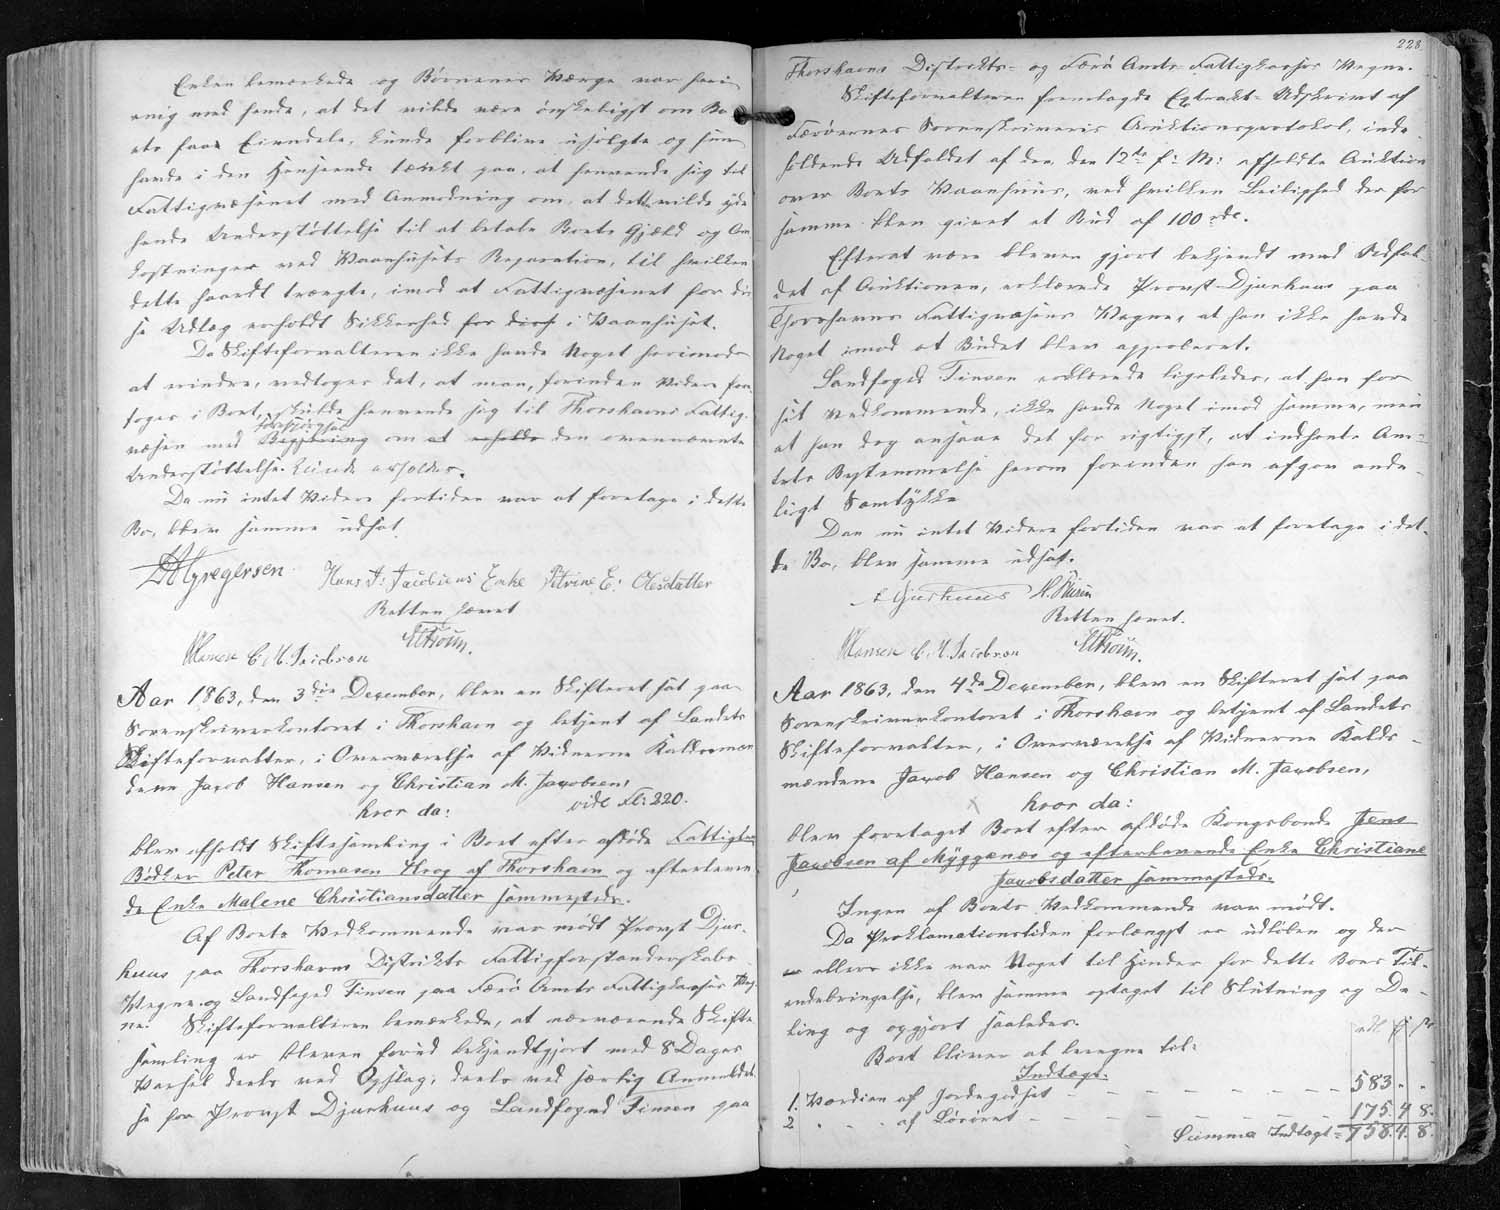 Enken bemærkede og Børnenes Værge var heri
enig med hende, at det vilde være ønskeligst om Bo
ets faae Eiendele, kunde forblive usolgte og hun
havde i den Henseende tænkt paa, at henvende sig til
Fattigvæsenet med Anmodning om, at dette vilde yde
hende Understøttelse til at betale Boets Gjæld og Om
kostninger ved Vaanhusets Reparation, til hvilken
dette haardt trængte, imod at Fattigvæsenet for dis
se Udlæg erholdt Sikkerhed for disse i Vaanhuset.
Da Skifteforvalteren ikke havde Noget herimod
at erindre, vedtoges det, at man, forinden Videre fore
toges i Boet, skulde henvende sig til Thorshavns Fattig-
væsen med Begjæring om at erholde den ovennævnte
forespørgsel
Understøttelse kunde erholdes.
Da nu intet Videre fortiden var at foretage i dette
Bo, blev samme udsat
HMyregersen Hans J: Jacobsens Enke Petrine E: Olesdatter
Retten hævet
EThom.
JHansen C. M. Jacobsen
Aar 1863, den 3die December, blev en Skifteret sat paa
Sorenskriverkontoret i Thorshavn og betjent af Landets
Skifteforvalter, i Overværelse af Vidnerne Kaldsmæn
dene Jacob Hansen og Christian M. Jacobsen,
hvor da: vide Fl: 220.
blev afholdt Skiftesamling i Boet efter afdøde Fattiglem
Bødker Peter Thomasen Krog af Thorshavn og efterleven
de Enke Malene Christiansdatter sammesteds.
Af Boets Vedkommende var mødt Provst Djur-
huus paa Thorshavns Distrikts Fattigforstanderskabs
Vegne og Landfoged Finsen paa Færø Amts Fattigkasses Veg-
ne. Skifteforvalteren bemærkede, at nærværende Skifte
samling er bleven forud bekjendtgjort med 8 Dages
Varsel deels ved Opslag, deels ved særlig Anmeldel-
se for Provst Djurhuus og Landfoged Finsen paa
228.
Thorshavns Distrikts- og Færø Amts Fattigkasses Vegne.
Skifteforvalteren fremlagde Extrakt-Udskrivt af
Færøernes Sorenskriveris Auktionsprotokol, inde-
holdende Udfaldet af den, den 12te f: M: afholdte Auktion
over Boets Vaanhuus, ved hvilken Leilighed der for
samme blev givet et Bud af 100 rdl.
Efterat være bleven gjort bekjendt med Udfal-
det af Auktionen, erklærede Provst Djurhuus paa
Thorshavns Fattigvæsens Vegne, at han ikke havde
Noget imod at Budet blev approberet.
Landfoged Finsen erklærede ligeledes, at han for
sit Vedkommende, ikke havde Noget imod samme, men
at han dog ansaae det for rigtigst, at indhente Am-
tets Bestemmelse herom forinden han afgav ende-
ligt Samtykke
Den nu intet Videre fortiden var at foretage i det-
te Bo, blev samme udsat.
Djurhuus H. Finsen
Retten hævet.
EThom.
JHansen C. M. Jacobsen
Aar 1863, den 4de December, blev en Skifteret sat paa
Sorenskriverkontoret i Thorshavn og betjent af Landets
Skifteforvalter, i Overværelse af Vidnerne Kalds-
mændene Jacob Hansen og Christian M. Jacobsen,
hvor da:
blev foretaget Boet efter afdøde Kongsbonde Jens
Jacobsen af Myggenæs og efterlevende Enke Christiane
Jacobsdatter sammesteds.
Ingen af Boets Vedkommende var mødt.
Da Proklamationstiden forlængst er udløben og der
ellers ikke var Noget til Hinder for dette Boes Til-
endebringelse, blev samme optaget til Slutning og De-
ling og opgjort saaledes.
Boet bliver at beregne til:
Indtægt. rdl ß
1. Værdien af Jordegodset - - - - - - - 583 " "
2 " - - af Løsøret - - - - - - - 175. 4 8.
Summa Indtægt = 758. 4. 8.